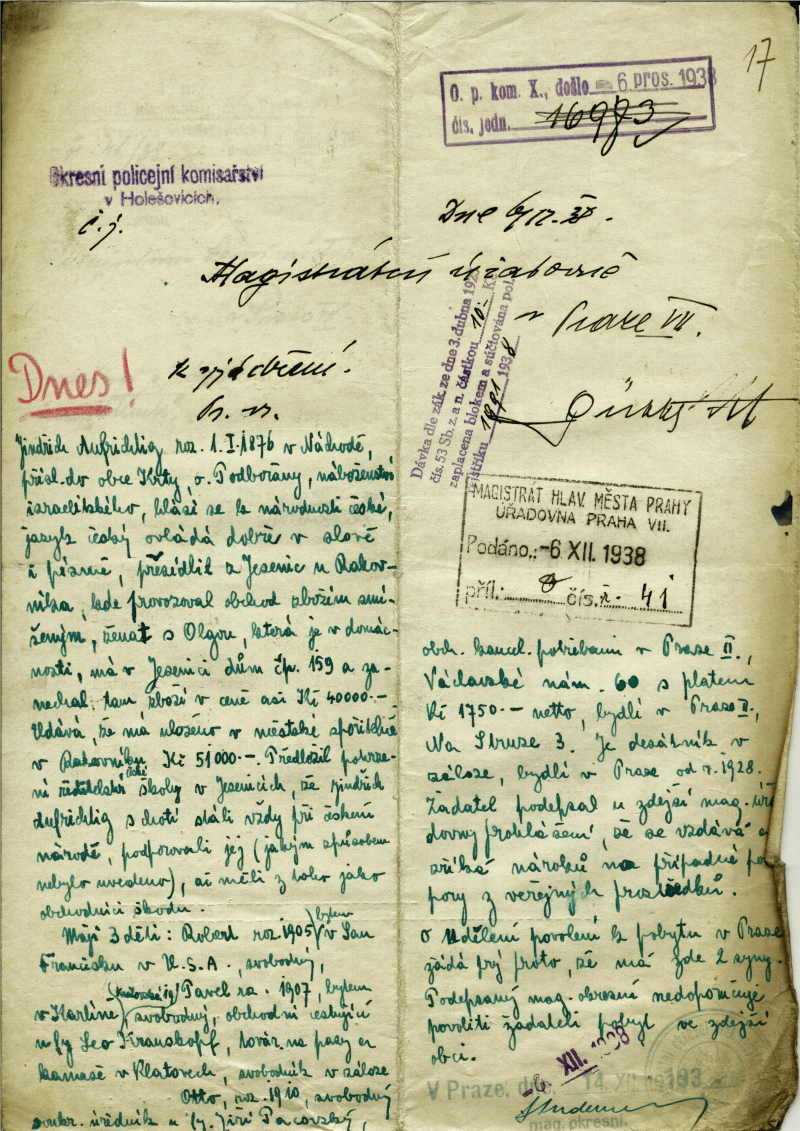 17
O. p. kom. X., došlo 6. pros. 1938
čís. jedn. 16973
Okresní policejní komisařství
v Holešovicích.
č. j.
Dne 6/12.
Magistrátní úřadovně
v Praze VII.
Dnes!
k vyjádření.
Dávka dle zák. ze dne 3. dubna 19
čís. 53 Sb. z. a n. částkou 10.- K
zaplacena blokem a súčtována pol.
rejstříku 1991 1938
MAGISTRÁT HLAV. MĚSTA PRAHY
ÚŘADOVNA PRAHA VII.
Podáno: -6 XII. 1938
příl.: čís. 41
Jindřich Aufrichtig roz. 1.I.1876 v Náchodě,
přísl. do obce Krty, o. Podbořany, náboženství
israelitského, hlásí se k národnosti české,
jazyk český ovládá dobře v slově
i písmě, přesídlil z Jesenic u Rakov-
níka, kde provozoval obchod zbožím smí-
šeným, ženat s Olgou, která je v domác-
nosti, má v Jesenici dům čp. 159 a za-
nechal tam zboží v ceně asi Kč 40000.-
Udává, že má uloženo v městské spořitelně
v Rakovníku Kč 51000.-. Předložil potvrze-
ní ředitelství české školy v Jesenicích, že Jindřich
Aufrichtig s chotí stáli vždy při českém
národě, podporovali jej (jakým způsobem
nebylo uvedeno), ač měli z toho jako
obchodníci škodu.
Mají 3 děti: Robert roz. 1905, bytem v San
Francisku v U.S.A., svobodný,
Pavel roz. 1907, bytem
v Karlíně, svobodný, obchodní cestující
u fy Leo Kranskopf, továr. na pasy a
kamaše v Klatovech, svobodník v záloze
Otto, roz. 1910, svobodný
soukr. úředník u fy. Jiří Pacovský,
obch. kancel. potřebami v Praze II.,
Václavské nám. 60 s platem
Kč 1750.- netto, bydlí v Praze II.,
Na Struze 3. Je desátník v
záloze, bydlí v Praze od r. 1928.
Žadatel podepsal u zdejší mag. úřa
dovny prohlášení, že se vzdává a
zříká nároků na případné po
pory z veřejných prostředků.
O udělení povolení k pobytu v Praze
žádá prý proto, že má zde 2 syny.
Podepsaný mag. okresní nedoporučuje
povoliti žadateli pobyt ve zdejší
obci.
-6. XII. 1938
V Praze, dne 14. XII. 193
mag. okresní.